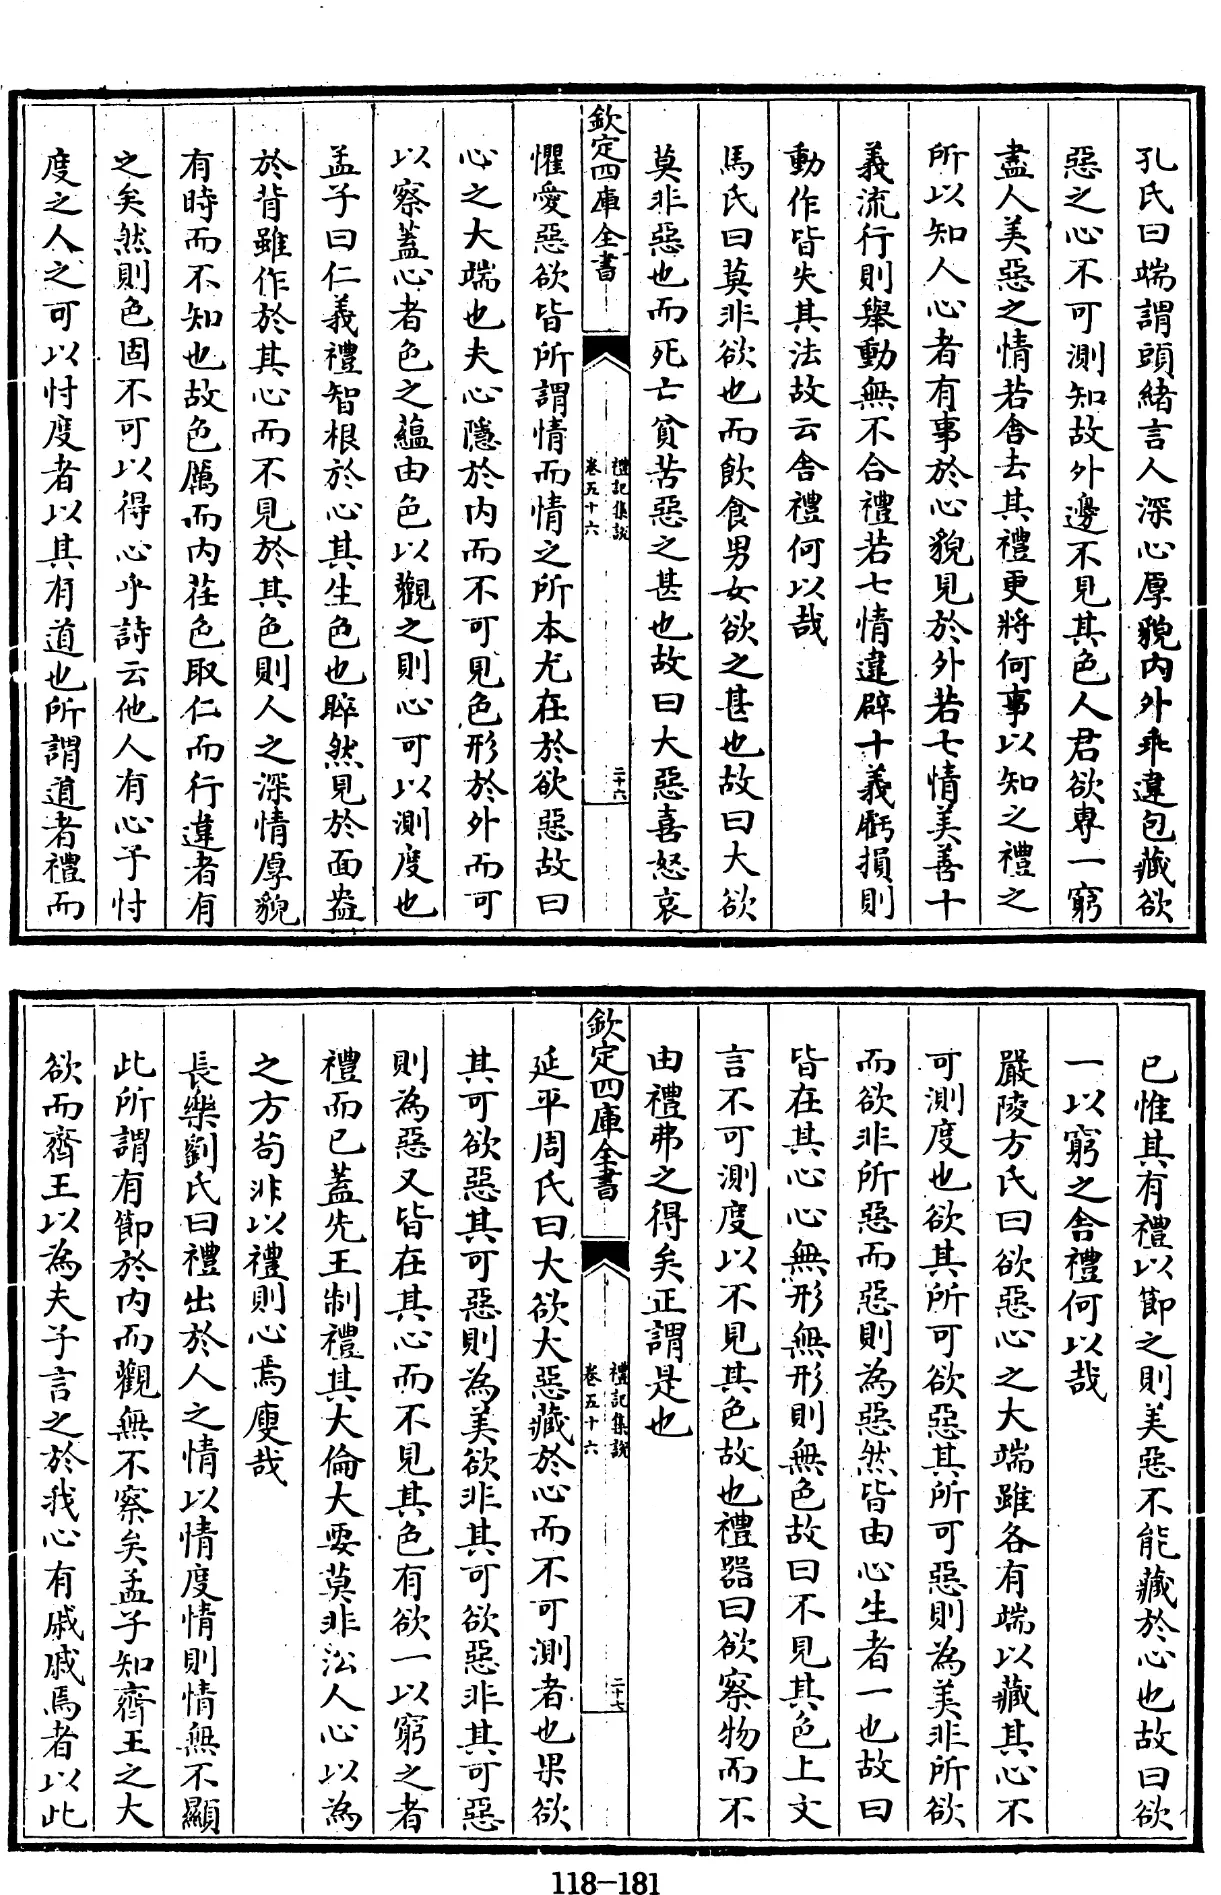 孔氏曰端謂頭緒言人深心厚貌内外乖違包藏欲
惡之心不可測知故外邊不見其色人君欲專一窮
盡人美惡之情若舍去其禮更將何事以知之禮之
所以知人心者有事於心貌見於外若七情美善十
義流行則舉動無不合禮若七情違辟十義虧損則
動作皆失其法故云舍禮何以哉
馬氏曰莫非欲也而飲食男女欲之甚也故曰大欲
莫非惡也而死亡貧苦惡之甚也故曰大惡喜怒哀
欽定四庫全書
禮記集說
卷五十六
二十六
懼愛惡欲皆所謂情而情之所本尤在於欲惡故曰
心之大端也夫心隱於内而不可見色形於外而可
以察蓋心者色之蘊由色以觀之則心可以測度也
孟子曰仁義禮智根於心其生色也睟然見於面盎
於背雖作於其心而不見於其色則人之深情厚貌
有時而不知也故色厲而内荏色取仁而行違者有
之矣然則色固不可以得心乎詩云他人有心予忖
度之人之可以忖度者以其有道也所謂道者禮而
已惟其有禮以節之則美惡不能藏於心也故曰欲
一以窮之舍禮何以哉
嚴陵方氏曰欲惡心之大端雖各有端以藏其心不
可測度也欲其所可欲惡其所可惡則為美非所欲
而欲非所惡而惡則為惡然皆由心生者一也故曰
皆在其心心無形無形則無色故曰不見其色上文
言不可測度以不見其色故也禮器曰欲察物而不
由禮弗之得矣正謂是也
欽定四庫全書
禮記集說
卷五十六
二十七
延平周氏曰大欲大惡藏於心而不可測者也果欲
其可欲惡其可惡則為美欲非其可欲惡非其可惡
則為惡又皆在其心而不見其色有欲一以窮之者
禮而已蓋先王制禮其大倫大要莫非㳂人心以為
之方苟非以禮則心焉廋哉
長樂劉氏曰禮出於人之情以情度情則情無不顯
此所謂有節於内而觀無不察矣孟子知齊王之大
欲而齊王以為夫子言之於我心有戚戚焉者以此
118-181